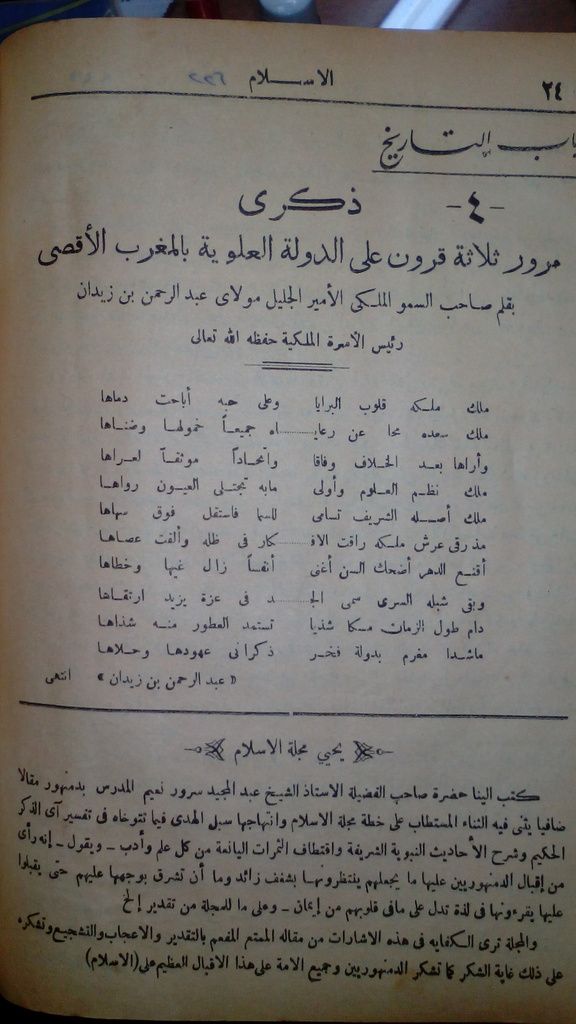 ٢٤ الاســـلام
باب التاريخ
-٤- ذكرى
مرور ثلاثة قرون على الدولة العلوية بالمغرب الأقصى
بقلم صاحب السمو الملكى الأمير الجليل مولاى عبد الرحمن بن زيدان
رئيس الأسرة الملكية حفظه الله تعالى
ملك ملكه قلوب البرايا وعلى حبه أباحت دماها
ملك سعده محا عن رعايـ ـاه جميعاً خمولها وضناها
وأراها بعد الخلاف وفاقا واتحاداً موثقاً لعراها
ملك نظم العلوم وأولى مابه تجتلى العيون رواها
ملك أصله الشريف تسامى للسما فاستقل فوق سهاها
مذ رقى عرش ملكه راقت الافـ ـكار فى ظله وألقت عصاها
أقنع الدهر أضحك السن أغنى أنفساً زال غيها وخطاها
وبقى شبله السرى سمى الجـ ـد فى عزة يزيد ارتقاها
دام طول الزمان مسكا شذيا تستمد العطور منه شذاها
ماشدا مغرم بدولة فخر ذكرانى عهودها وحلاها
« عبد الرحمن بن زيدان » انتهى
يحيي مجلة الاسلام
كتب الينا حضرة صاحب الفضيلة الاستاذ الشيخ عبد المجيد سرور نعيم المدرس بدمنهور مقالا
ضافيا يثنى فيه الثناء المستطاب على خطة مجلة الاسلام وانتهاجها سبل الهدى فيما تتوخاه فى تفسير آى الذكر
الحكيم وشرح الأحاديث النبوية الشريفة واقتطاف الثمرات اليانعة من كل علم وأدب ـ ويقول ـ إنه رأى
من إقبال الدمنهوريين عليها ما يجعلهم ينتظرونها بشغف زائد وما أن تشرق بوجهها عليهم حتى يقبلوا
عليها يقرءونها فى لذة تدل على مافى قلوبهم من إيمان ـ وعلى ما للمجلة من تقدير إلخ
والمجلة ترى الكفايه فى هذه الاشارات من مقاله الممتع المفعم بالتقدير والاعجاب والتشجيع وتشكره
على ذلك غاية الشكر كما تشكر الدمنهوريين وجميع الامة على هذا الاقبال العظيم على (الاسلام)